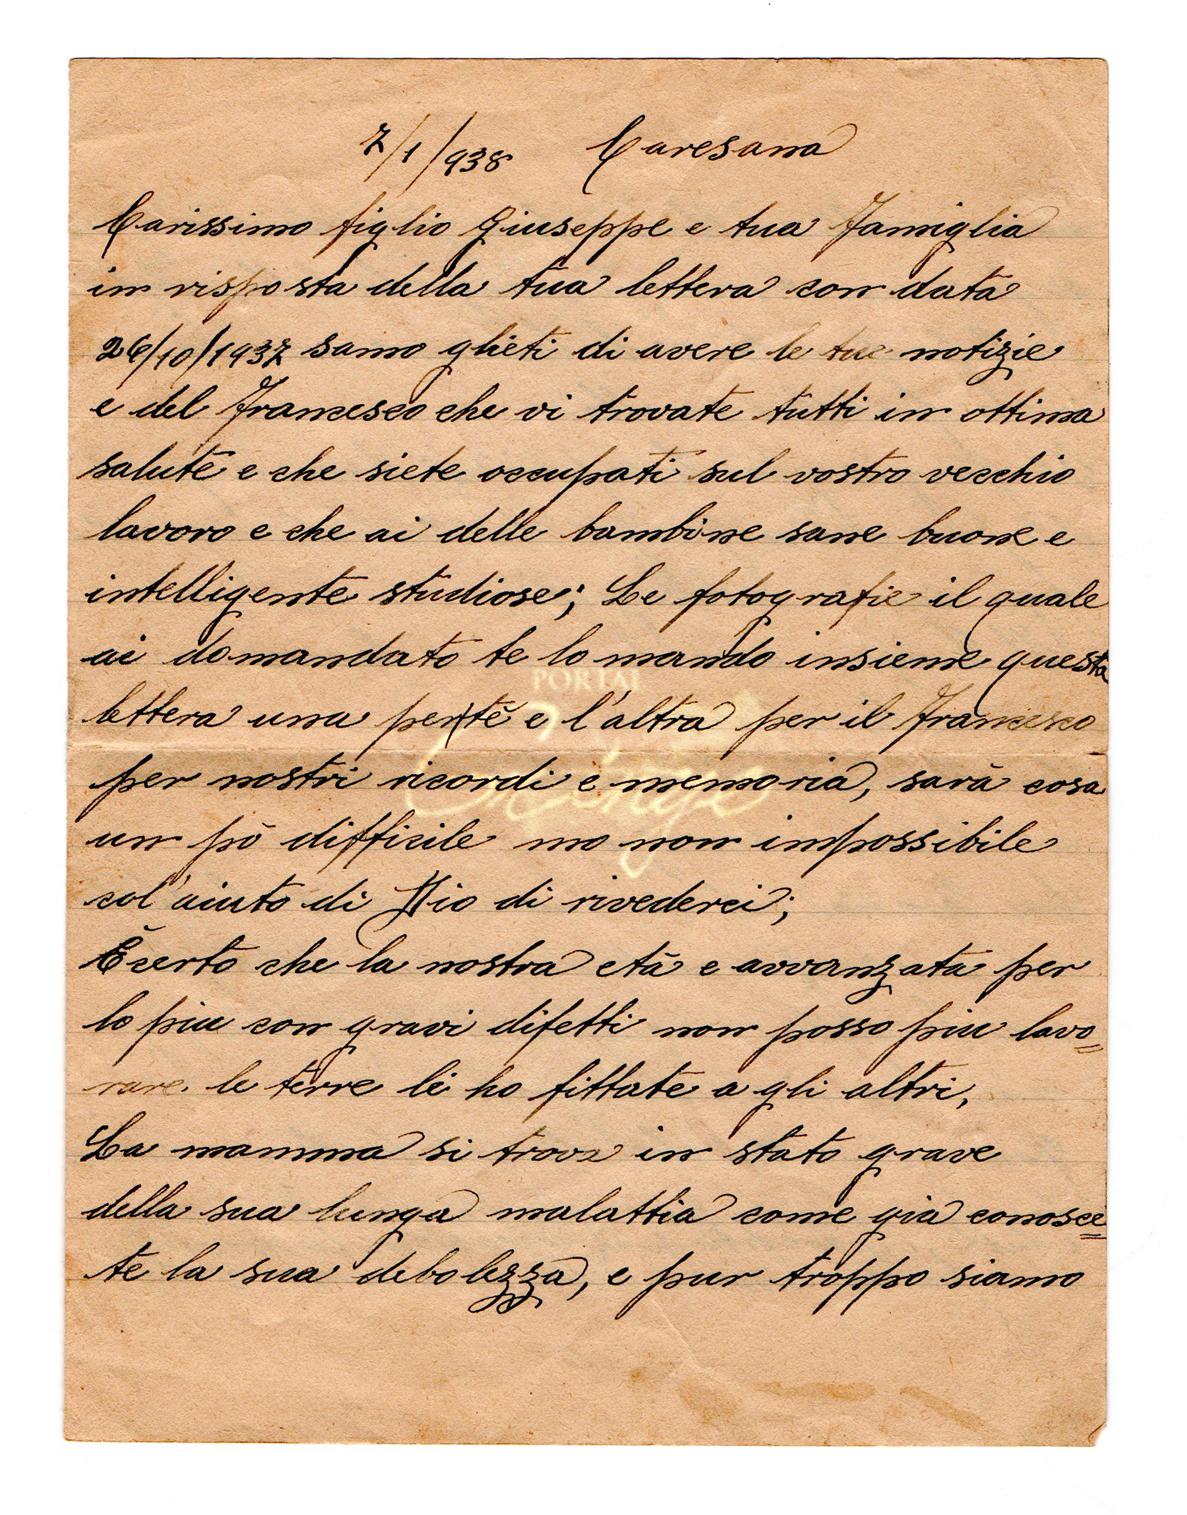 7/1/938 Caresana
Carissimo figlio Giuseppe e tua Famiglia
in risposta della tua lettera con data
26/10/1937 samo glieti di avere le tue notizie
e del Francesco che vi trovate tutti in ottima
salute e che siete occupati sul vostro vecchio
lavoro e che ai delle bambine sane buone e
intelligente studiose; Le fotografie il quale
ai domandato te lo mando insieme questa
lettera una per tè e l'altra per il Francesco
per nostri ricordi e memoria, sarà cosa
un pò difficile mo non impossibile
col'aiuto di Dio di rivederci;
È certo che la nostra età e avvanzata per
lo piu con gravi difetti non posso piu lavo=
rare. le terre li ho fittate a gli altri,
La mamma si trova in stato grave
della sua lunga malattia come già conosce=
te la sua debolezza, e pur troppo siamo
PORTAL